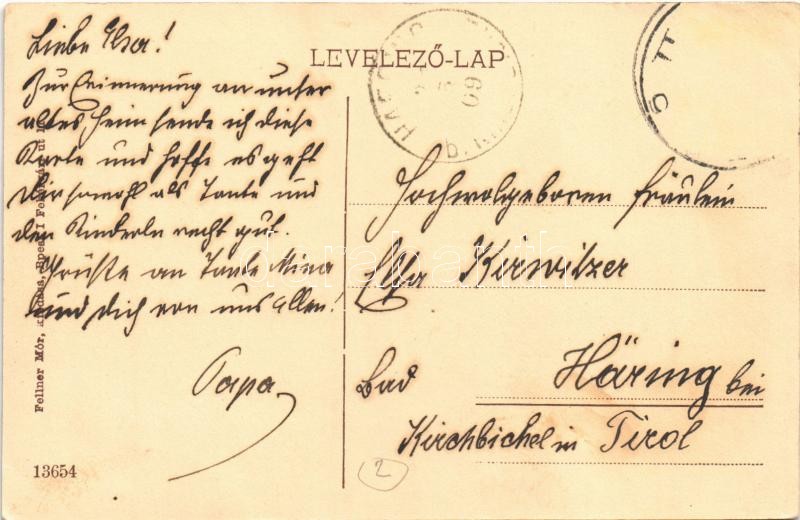 LEVELEZŐ-LAP
Liebe Elsa!
Zur Erinnerung an unser
altes Heim sende ich diese
Karte und hoffe es geht
Dir sowohl als Tante und
den Kinderln recht gut.
Grüße an Tante Mina
und Dich von uns allen!
Papa
Hochwolgeboren Fräulein
Elsa Kirwitzer
Bad Häring bei
Kirchbichel in Tirol
Fellner Mór,
13654
2
HAERING
09